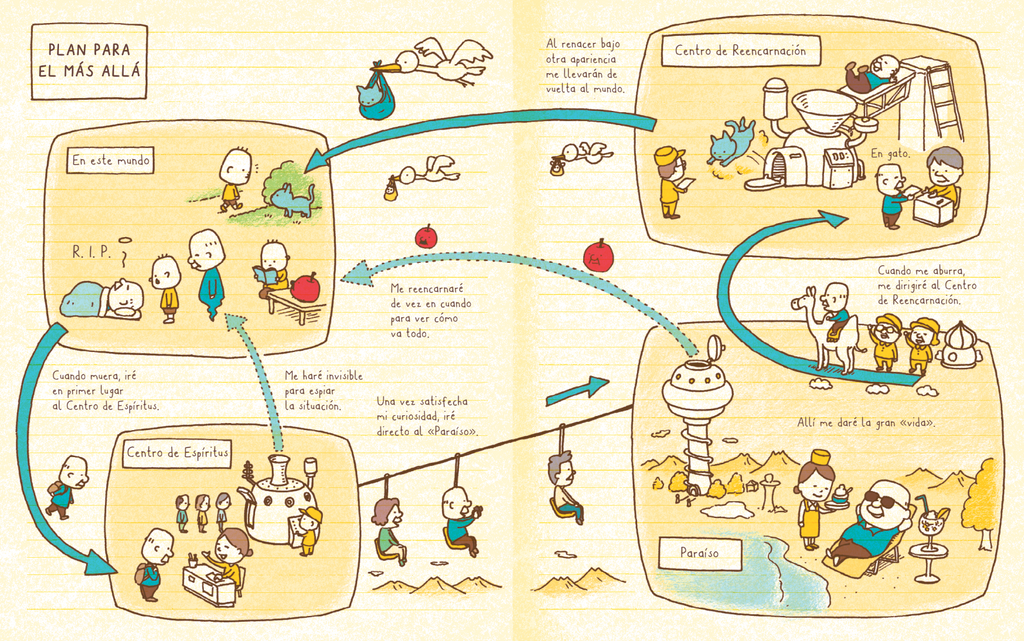 PLAN PARA
EL MÁS ALLÁ
En este mundo
R. I. P.
Cuando muera, iré
en primer lugar
al Centro de Espíritus.
Me haré invisible
para espiar
la situación.
Centro de Espíritus
Una vez satisfecha
mi curiosidad, iré
directo al «Paraíso».
Me reencarnaré
de vez en cuando
para ver cómo
va todo.
Al renacer bajo
otra apariencia
me llevarán de
vuelta al mundo.
Centro de Reencarnación
En gato.
Cuando me aburra,
me dirigiré al Centro
de Reencarnación.
Allí me daré la gran «vida».
Paraíso